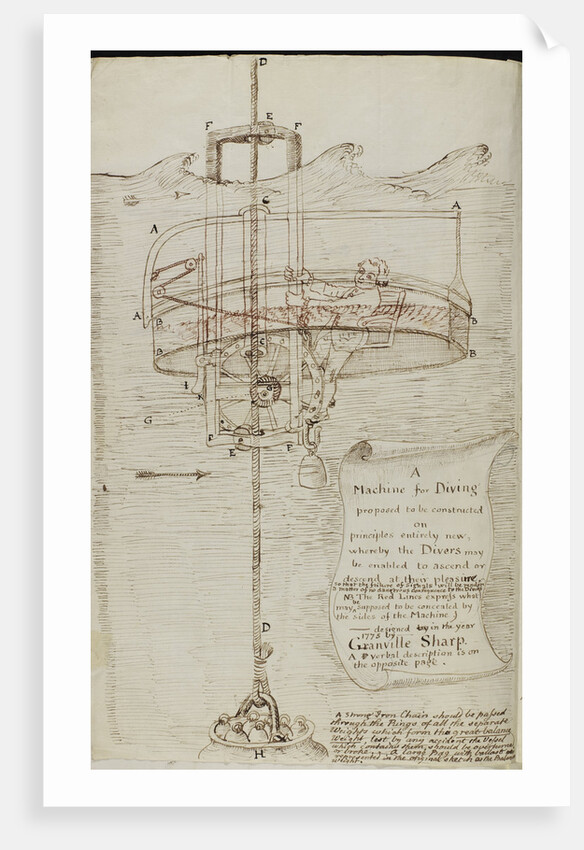 D
F E F
C
A A
A B B
B B
C
I
G
F E F
A
Machine for Diving
proposed to be constructed
on
principles entirely new,
whereby the Divers may
be enabled to ascend or
descend at their pleasure,
so that the failure of Signals will be render'd
a matter of no dangerous consequence to the Divers
NB The Red Lines express what
may be supposed to be concealed by
the sides of the Machine)
designed in the year
1775 by
Granville Sharp.
A verbal description is on
the opposite page.
D
H
A strong Iron Chain should be passed
through the Rings of all the separate
Weights which form the great balance
Weight lest by any accident the Vessel
which contains them, should be overturned
or broke; A large Bag with ballast is
represented in the original sketch as the Balance
weight.